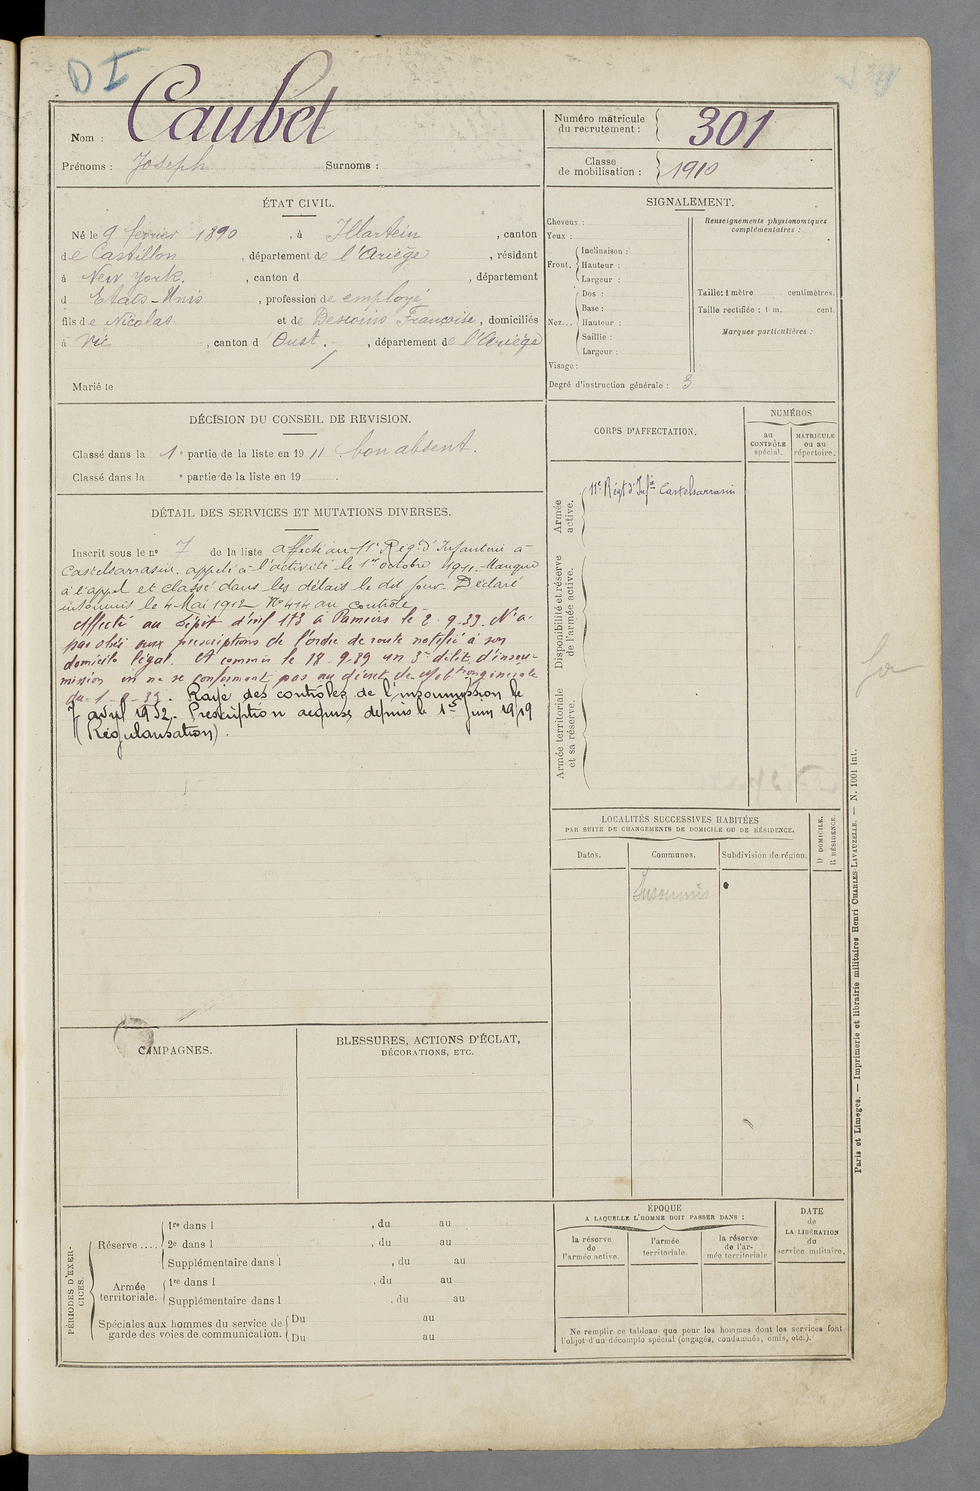 DI
Nom : Caubet
Prénoms : Joseph Surnoms :
Numéro matricule du recrutement : 301
Classe de mobilisation : 1910
ÉTAT CIVIL.
Né le 9 février 1890, à Illartein, canton
de Castillon, département de l'Ariège, résidant
à New York, canton d , département
d Etats-Unis, profession de employé
fils de Nicolas et de Françoise, domiciliés
à Vic, canton d Oust, département de l'Ariège
Marié le
SIGNALEMENT.
Cheveux :
Yeux :
Front. Inclinaison :
Hauteur :
Largeur :
Nez... Dos :
Base :
Hauteur :
Saillie :
Largeur :
Visage :
Renseignements physionomiques complémentaires :
Taille : 1 mètre centimètres.
Taille rectifiée : 1 m. cent.
Marques particulières :
Degré d'instruction générale : 3
DÉCISION DU CONSEIL DE REVISION.
Classé dans la 1e partie de la liste en 1911. bon absent.
Classé dans la e partie de la liste en 19 .
DÉTAIL DES SERVICES ET MUTATIONS DIVERSES.
Inscrit sous le n° 7 de la liste affecté au 11e Rég. d'Infanterie à
Castelsarrasin. appelé à l'activité le 1er octobre 1911. Manque
à l'appel et classé dans les délais le dit jour. Déclaré
insoumis le 4 Mai 1912 N° 414 au Controle
Affecté au Dépôt d'inf 173 à Pamiers le 2.9.39. N'a
pas obéi aux prescriptions de l'ordre de route notifié à son
domicile légal. A commis le 18.9.39 un 3e délit d'insou-
mission en ne se conformant pas au décret de mobton générale
du 1.9.39. Rayé des contrôles de l'insoumission le
7 avril 1952. Prescription acquise depuis le 1er Juin 1919
(Régularisation).
CORPS D'AFFECTATION.
NUMÉROS
au CONTRÔLE spécial.
MATRICULE ou au répertoire.
Armée active.
11e Régt d'Infie Castelsarrasin
Disponibilité et réserve de l'armée active.
Armée territoriale et sa réserve.
LOCALITÉS SUCCESSIVES HABITÉES
PAR SUITE DE CHANGEMENTS DE DOMICILE OU DE RÉSIDENCE.
Dates.
Communes.
Subdivision de région.
D DOMICILE.
R RÉSIDENCE.
Insoumis
CAMPAGNES.
BLESSURES, ACTIONS D'ÉCLAT,
DÉCORATIONS, ETC.
PÉRIODES D'EXERCICES.
Réserve .... 1re dans l , du au
2e dans l , du au
Supplémentaire dans l , du au
Armée territoriale. 1re dans l , du au
Supplémentaire dans l , du au
Spéciales aux hommes du service de garde des voies de communication. Du au
Du au
ÉPOQUE
A LAQUELLE L'HOMME DOIT PASSER DANS :
la réserve de l'armée active.
l'armée territoriale.
la réserve de l'armée territoriale
DATE de LA LIBÉRATION du service militaire.
Ne remplir ce tableau que pour les hommes dont les services font
l'objet d'un décompte spécial (engagés, condamnés, omis, etc.).
Paris et Limoges. — Imprimerie et librairie militaires Henri CHARLES-LAVAUZELLE. — N. 1001 int.